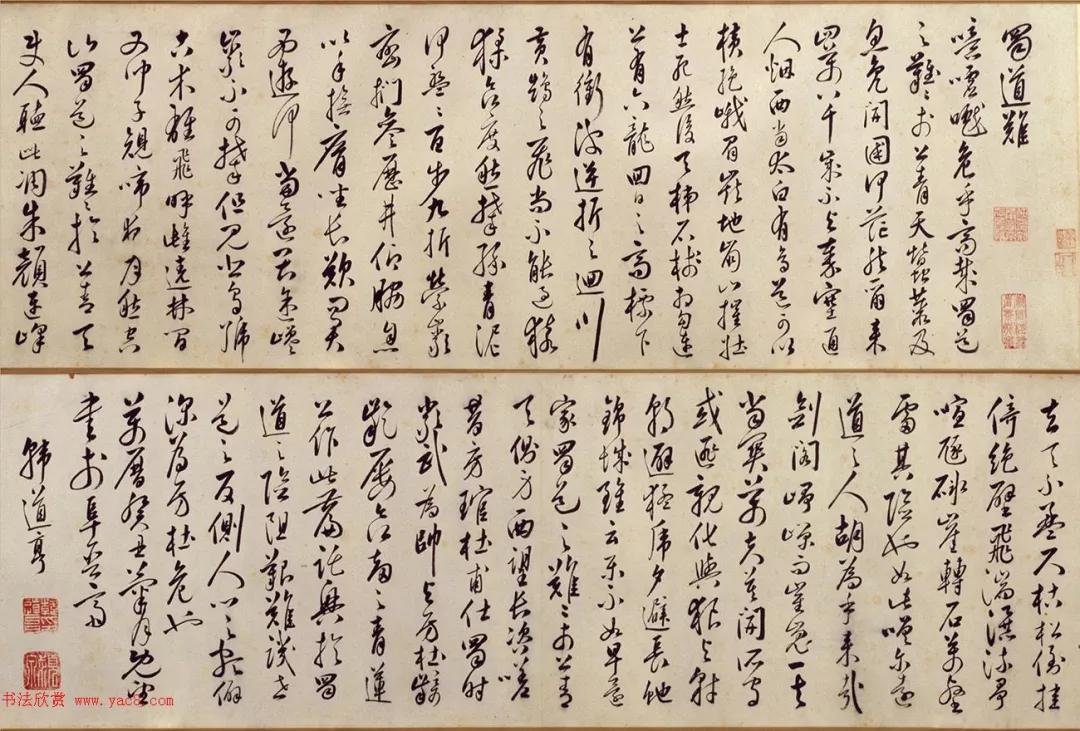 蜀道難
噫嘘嚱危乎高哉蜀道
之難難於上青天蠶叢及
魚鳧開國何茫然爾來
四萬八千歲不與秦塞通
人烟西當太白有鳥道可以
橫絕峨眉巔地崩山摧壯
士死然後天梯石棧相鉤連
上有六龍回日之高標下
有衝波逆折之迴川
黃鶴之飛尚不能過猿
猱欲度愁攀緣青泥
何盤盤百步九折縈巖
巒捫參歷井仰脅息
以手撫膺坐長歎問君
西遊何當還畏途巉
巖不可攀但見悲鳥號
古木雄飛呼雌遶林間
又聞子規啼夜月愁空
山蜀道之難難於上青天
使人聽此凋朱顏連峰
去天不盈尺枯松倒挂
倚絕壁飛湍瀑流爭
喧豗砯崖轉石萬壑
雷其險也如此嗟爾遠
道之人胡為乎來哉
劍閣崢嶸而崔嵬一夫
當關萬夫莫開所守
或匪親化為狼與豺
朝避猛虎夕避長蛇
錦城雖云樂不如早還
家蜀道之難難於上青
天側身西望長咨嗟
昔房琯杜甫仕蜀時
嚴武為帥與房杜齟
齬屢欲害之青蓮
公作此篇託興於蜀
道之險阻艱難
之反側人心之
深為房杜危也
萬曆癸丑
書於
韓道亨
书法欣赏 www.yac8.com